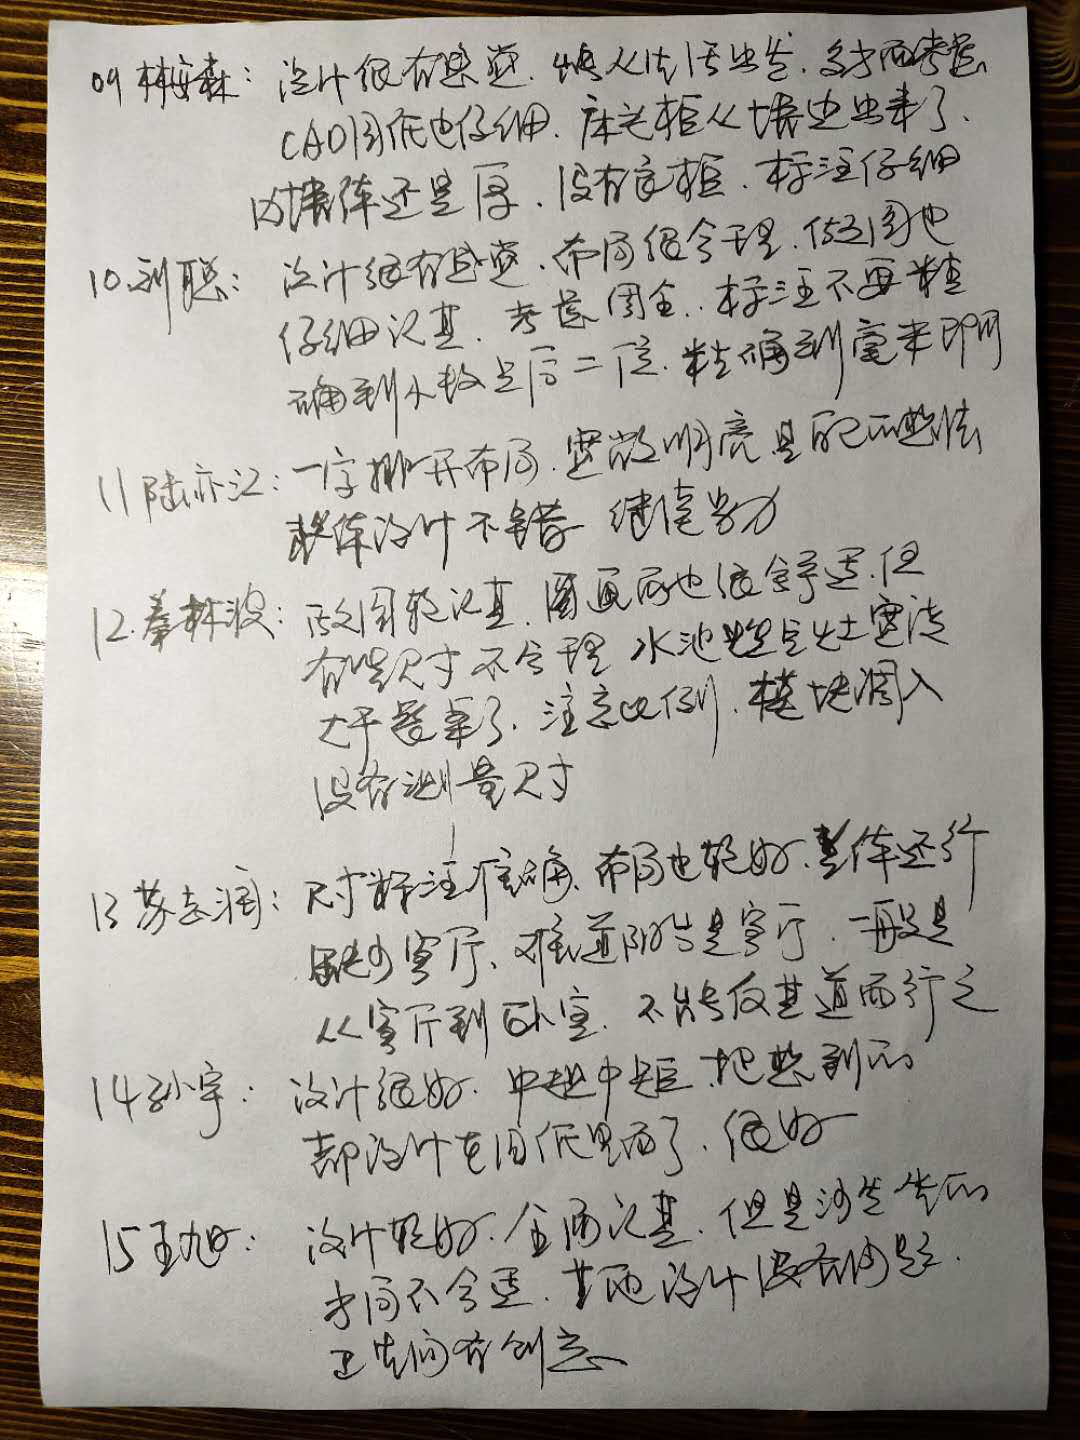 09 林安森：设计很有感觉，能从生活出发，多方面考虑
CAD图纸也仔细，床头柜从墙边出来了，
内墙体还是厚，没有衣柜，标注仔细
10.刘聪：设计很有感觉，布局很合理，做图也
仔细认真，考虑周全，标注不要精
确到小数点后二位，精确到毫米即可
11 陆亦江：一字排开布局，宽敞明亮是我的想法
整体设计不错 继续努力
12.秦林波：改图较认真，图面感也很舒适，但
有些尺寸不合理 水池 灶宽
大于 了，注意比例，模块调入
没有测量尺寸
13 苏志润：尺寸标注准确，布局也较好，整体还行
缺少客厅、难道阳台是客厅，一般是
从客厅到卧室，不能反其道而行之
14 孙宇：设计很好，中规中矩，把想到的
都设计在图纸里面了，很好
15 王旭：设计较好，全面认真，但是沙发 的
方向不合适，其它设计没有问题，
卫生间有创意